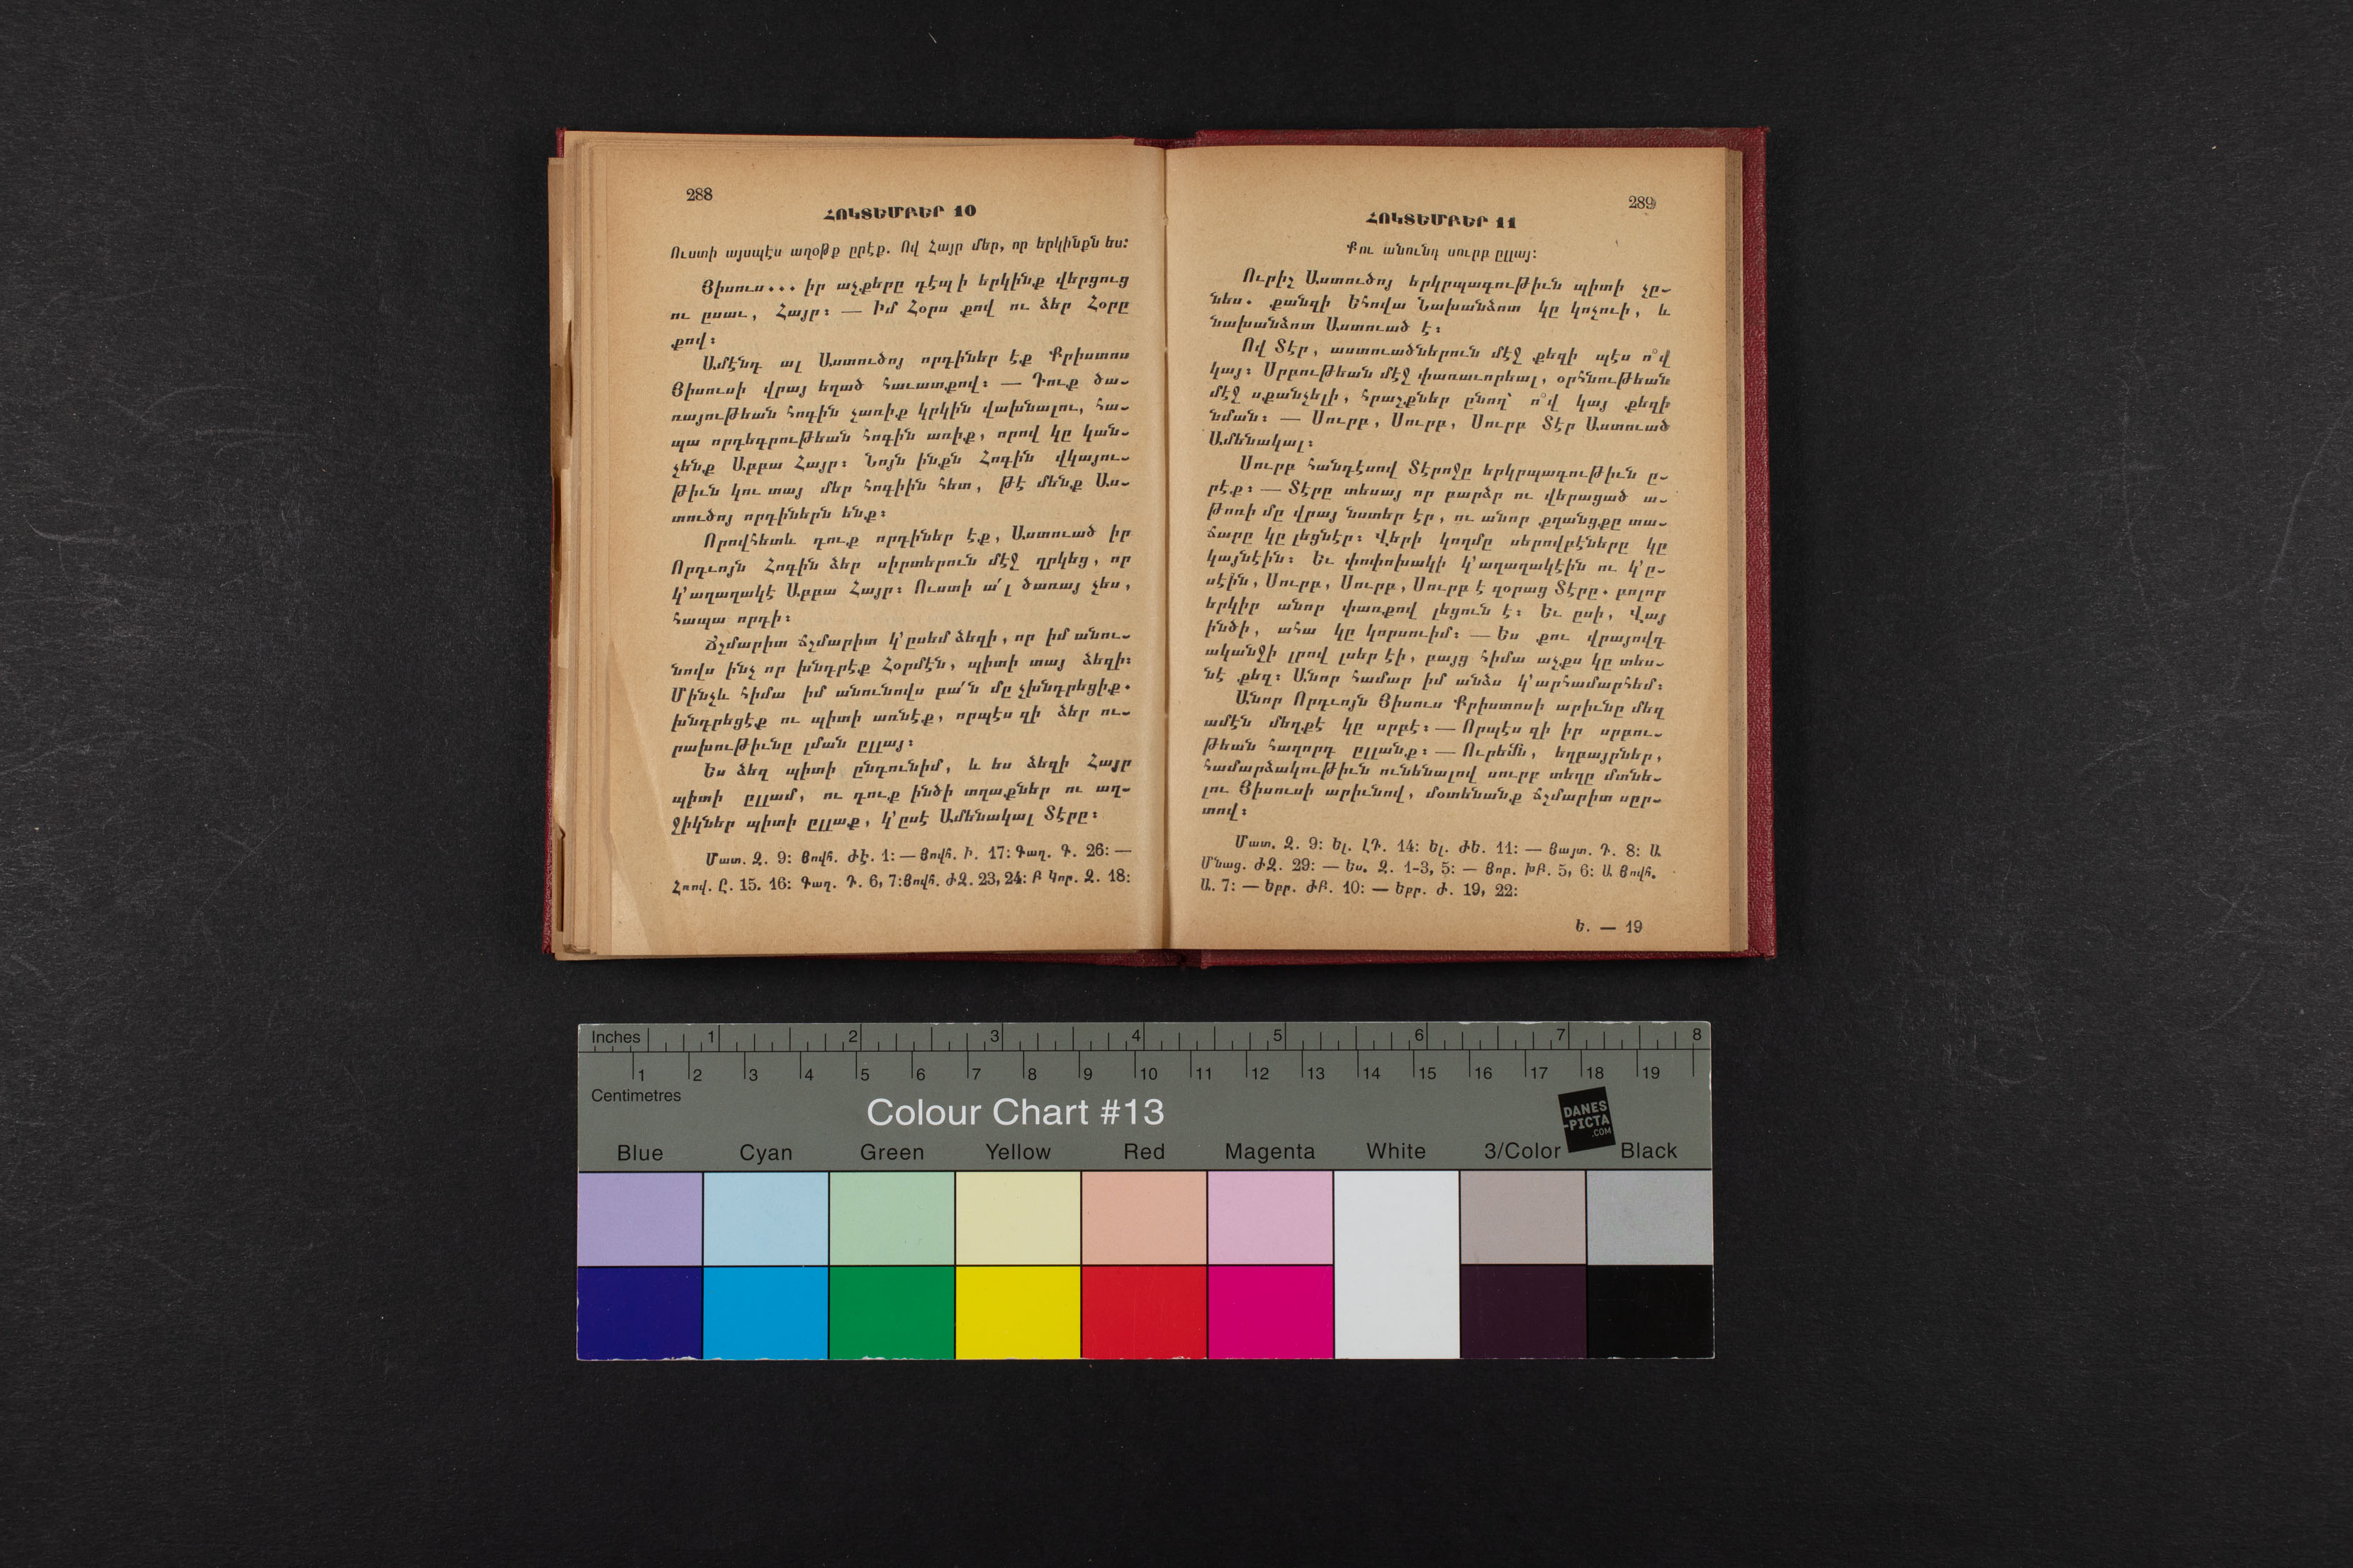 288
ՀՈԿՏԵՄԲԵՐ 10
Ուստի այսպէս աղօթք ըրէք. Ով Հայր մեր, որ երկինքն ես:
Յիսուս... իր աչքերը դէպ ի երկինք վերցուց
ու ըսաւ, Հայր: — Իմ Հօրս քով ու ձեր Հօրը
քով:
Ամէնդ ալ Աստուծոյ որդիներ էք Քրիստոս
Յիսուսի վրայ եղած հաւատքով: — Դուք ծա-
ռայութեան հոգին չառիք կրկին վախնալու, հա-
պա որդեգրութեան հոգին առիք, որով կը կան-
չենք Աբբա Հայր: Նոյն ինքն Հոգին վկայու-
թիւն կու տայ մեր հոգիին հետ, թէ մենք Աս-
տուծոյ որդիներն ենք:
Որովհետև դուք որդիներ էք, Աստուած իր
Որդւոյն Հոգին ձեր սիրտերուն մէջ ղրկեց, որ
կ'աղաղակէ Աբբա Հայր: Ուստի ա՛լ ծառայ չես,
հապա որդի:
Ճշմարիտ ճշմարիտ կ'ըսեմ ձեզի, որ իմ անու-
նովս ինչ որ խնդրէք Հօրմէն, պիտի տայ ձեզի:
Մինչև հիմա իմ անունովս բա՛ն մը չխնդրեցիք.
խնդրեցէք ու պիտի առնէք, որպէս զի ձեր ու-
րախութիւնը լման ըլլայ:
Ես ձեզ պիտի ընդունիմ, և ես ձեզի Հայր
պիտի ըլլամ, ու դուք ինծի տղաքներ ու աղ-
ջիկներ պիտի ըլլաք, կ'ըսէ Ամենակալ Տէրը:
Մատ. Զ. 9: Յովհ. ԺԷ. 1: — Յովհ. Ի. 17: Գաղ. Գ. 26: —
Հռով. Ը. 15. 16: Գաղ. Դ. 6, 7: Յովհ. ԺԶ. 23, 24: Բ Կոր. Զ. 18:
289
ՀՈԿՏԵՄԲԵՐ 11
Քու անունդ սուրբ ըլլայ:
Ուրիշ Աստուծոյ երկրպագութիւն պիտի չը-
նես. քանզի Եհովա Նախանձոտ կը կոչուի, և
նախանձոտ Աստուած է:
Ով Տէր, աստուածներուն մէջ քեզի պէս ո՞վ
կայ: Սրբութեան մէջ փառաւորեալ, օրհնութեան
մէջ սքանչելի, հրաշքներ ընող՝ ո՞վ կայ քեզի
նման: — Սուրբ, Սուրբ, Սուրբ Տէր Աստուած
Ամենակալ:
Սուրբ հանդէսով Տէրոջը երկրպագութիւն ը-
րէք: — Տէրը տեսայ որ բարձր ու վերացած ա-
թոռի մը վրայ նստեր էր, ու անոր քղանցքը տա-
ճարը կը լեցնէր: Վերի կողմը սերովբէները կը
կայնէին: Եւ փոփոխակի կ'աղաղակէին ու կ'ը-
սէին, Սուրբ, Սուրբ, Սուրբ է զօրաց Տէրը. բոլոր
երկիր անոր փառքով լեցուն է: Եւ ըսի, Վայ
ինծի, ահա կը կորսուիմ: — Ես քու վրայովդ
ականջի լրով լսեր էի, բայց հիմա աչքս կը տես-
նէ քեզ: Անոր համար իմ անձս կ'արհամարհեմ:
Անոր Որդւոյն Յիսուս Քրիստոսի արիւնը մեզ
ամէն մեղքէ կը սրբէ: — Որպէս զի իր սրբու-
թեան հաղորդ ըլլանք: — Ուրեմն, եղբայրներ,
համարձակութիւն ունենալով սուրբ տեղը մտնե-
լու Յիսուսի արիւնով, մօտենանք ճշմարիտ սըր-
տով:
Մատ. Զ. 9: Ել. ԼԴ. 14: Ել. ԺԵ. 11: — Յայտ. Դ. 8: Ա
Մնաց. ԺԶ. 29: — Ես. Զ. 1-3, 5: — Յոբ. ԽԲ. 5, 6: Ա Յովհ.
Ա. 7: — Եբր. ԺԲ. 10: — Եբր. Ժ. 19, 22:
Ե. — 19
Inches 1 2 3 4 5 6 7 8
1 2 3 4 5 6 7 8 9 10 11 12 13 14 15 16 17 18 19
Centimetres
Colour Chart #13
DANES
-PICTA
.COM
Blue Cyan Green Yellow Red Magenta White 3/Color Black